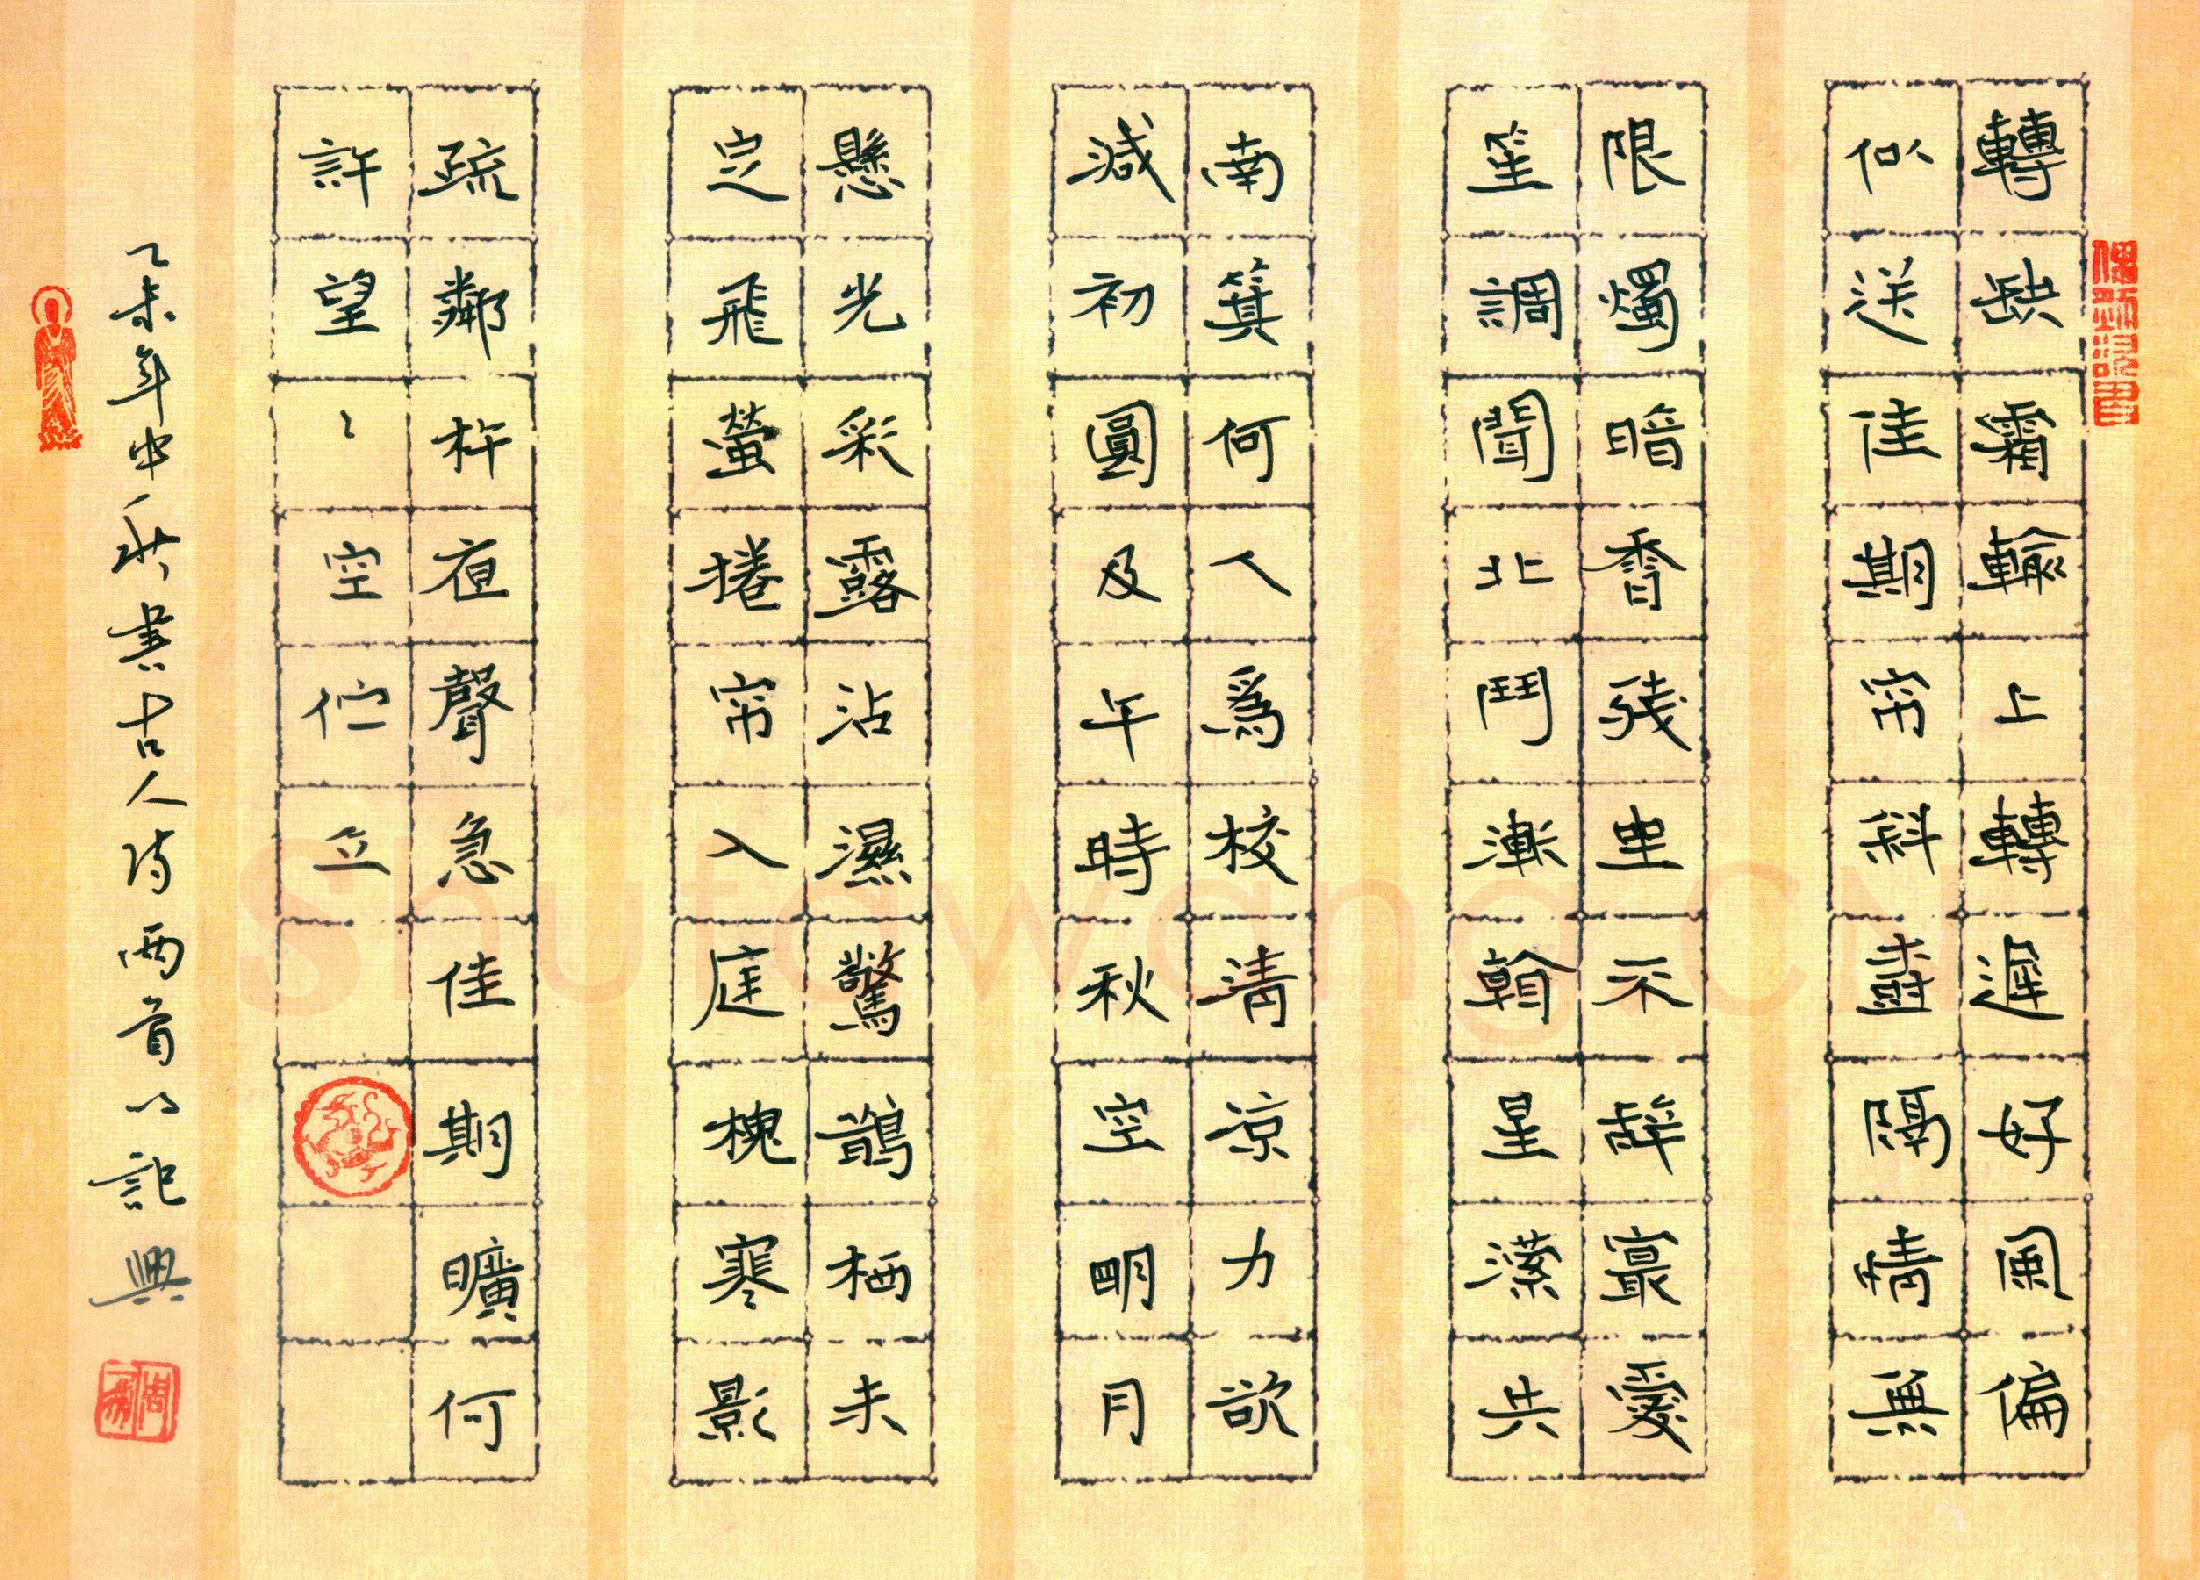 轉缺霜輪上轉遲好風偏
似送佳期帘斜樹隔情無
限燭暗香殘坐不辭最愛
笙調聞北鬥漸翰星濴共
南箕何人爲校清涼力欲
減初圓及午時秋空明月
懸光彩露沾濕驚鵲栖未
定飛螢捲帘入庭槐寒影
疏鄰杵夜聲急佳期曠何
許望〻空佇立
乙未年中秋書古人诗兩首以記興
Shufawang.CN